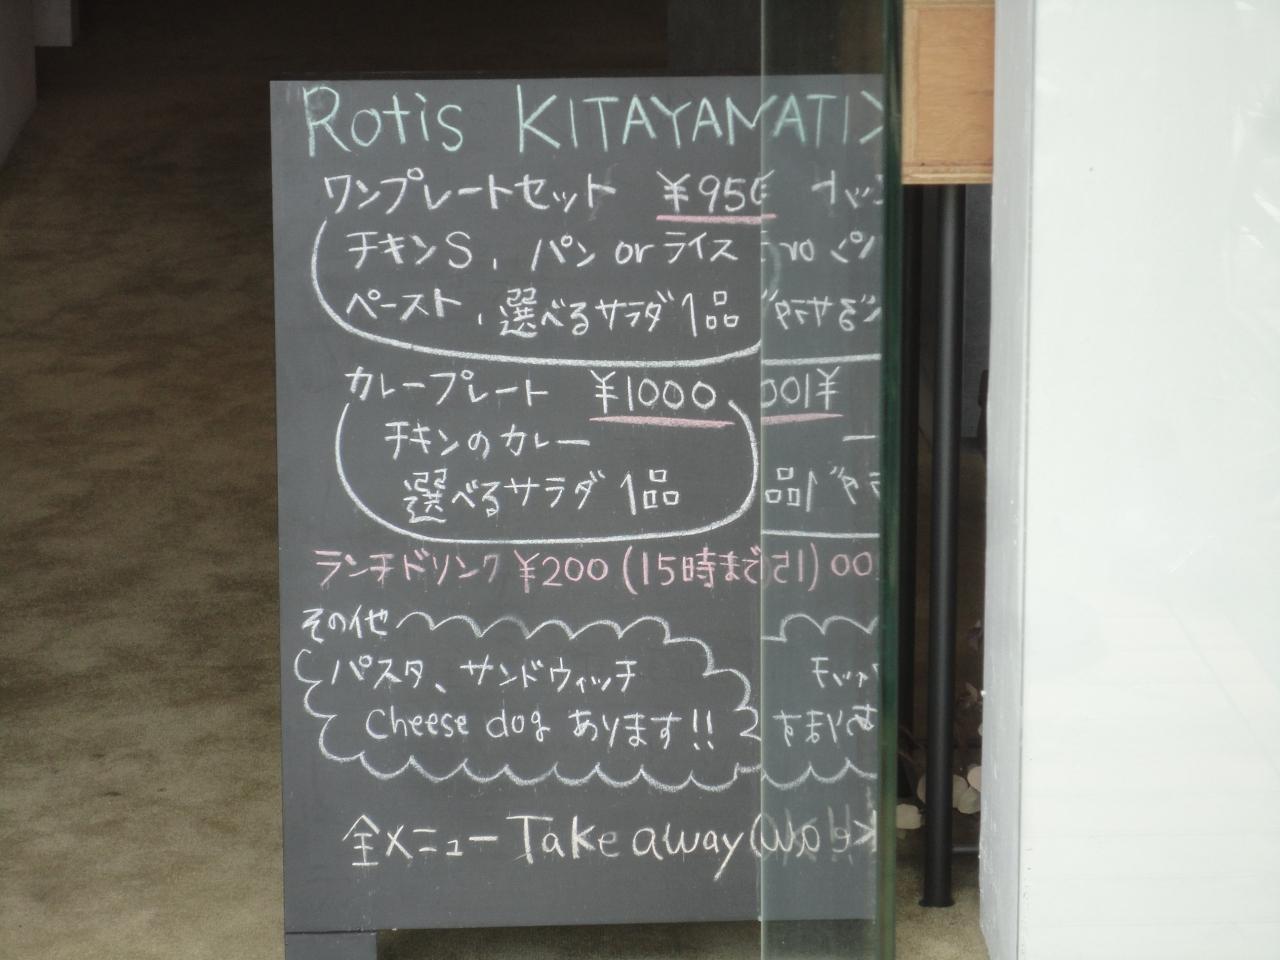 Rotis KITAYAMA
ワンプレートセット ¥950
チキンS、パン or ライス
ペースト、選べるサラダ1品
カレープレート ¥1000
チキンのカレー
選べるサラダ 1品
ランチドリンク ¥200 (15時まで
その他
パスタ、サンドウィッチ
Cheese dog あります!!
全メニュー Take away